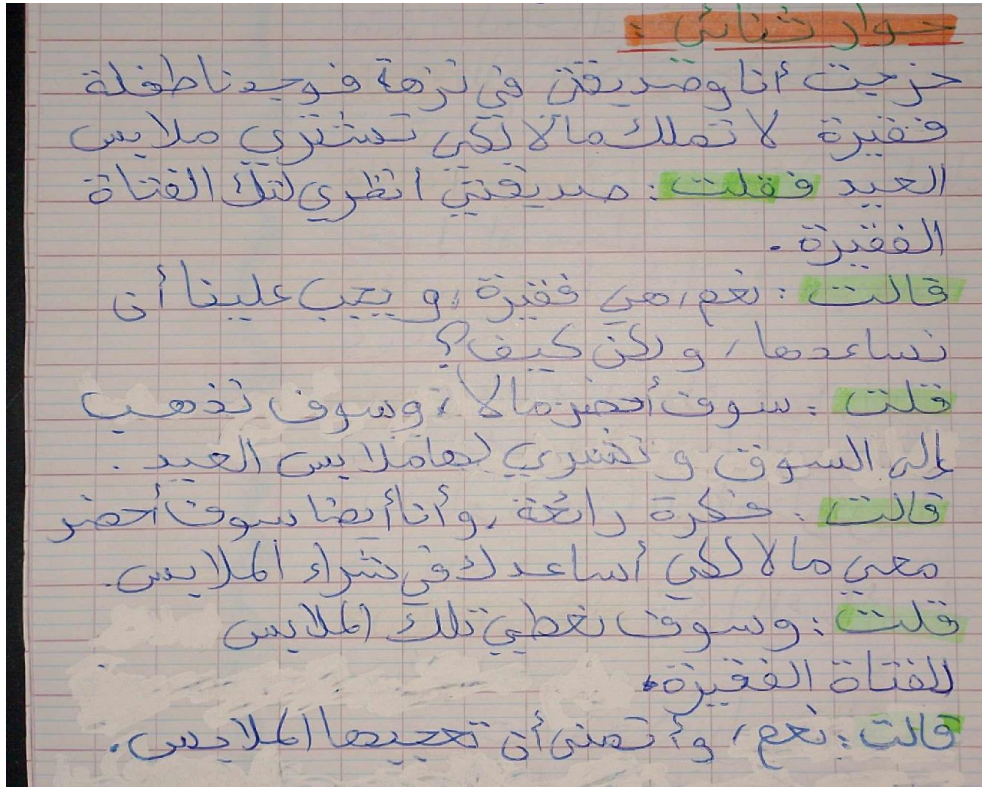 حوار ثنائي :
خرجت أنا وصديقتي في نزهة فوجدنا طفلة
فقيرة لا تملك مالا لكي تشتري ملابس
العيد فقلت : صديقتي انظري لتلك الفتاة
الفقيرة .
قالت : نعم، هي فقيرة، و يجب علينا أن
نساعدها، و لكن كيف؟
قلت : سوف أحضر مالا، وسوف نذهب
إلى السوق و نشتري لها ملابس العيد .
قالت : فكرة رائعة، و أنا أيضا سوف أحضر
معي مالا لكي أساعدك في شراء الملابس.
قلت : وسوف نعطي تلك الملابس
للفتاة الفقيرة.
قالت : نعم، و أتمنى أن تعجبها الملابس.